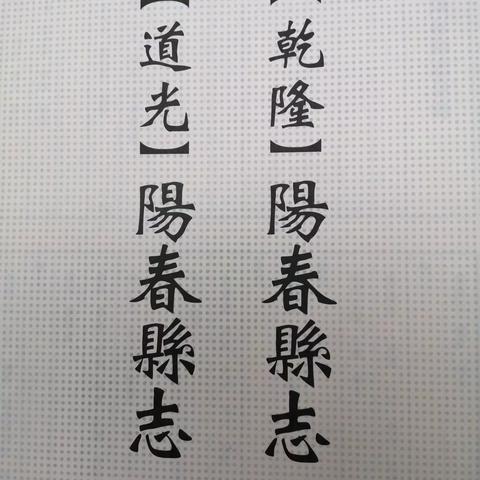 【乾隆】陽春縣志
【道光】陽春縣志